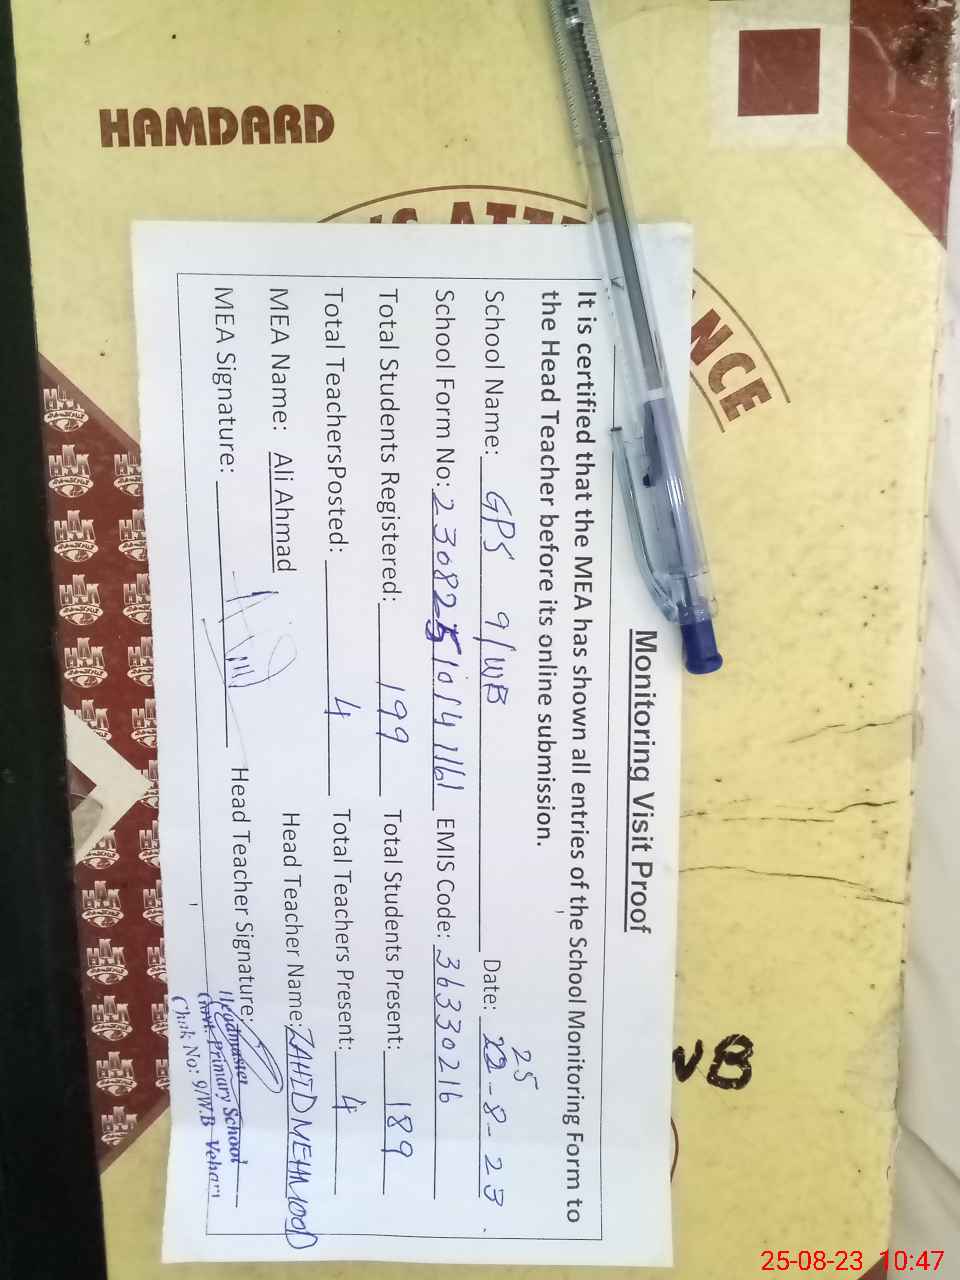 HAMDARD
'S ATTE
NCE
WB
Monitoring Visit Proof
It is certified that the MEA has shown all entries of the School Monitoring Form to
the Head Teacher before its online submission.
School Name: GPS 9/WB Date: 25-8-23
School Form No: EMIS Code: 36330216
Total Students Registered: 199 Total Students Present: 189
Total TeachersPosted: 4 Total Teachers Present: 4
MEA Name: Ali Ahmad Head Teacher Name: ZAHID MEHMOOD
MEA Signature: Head Teacher Signature:
Headmaster
Govt. Primary School
Chak No: 9/W.B Vehari
25-08-23 10:47